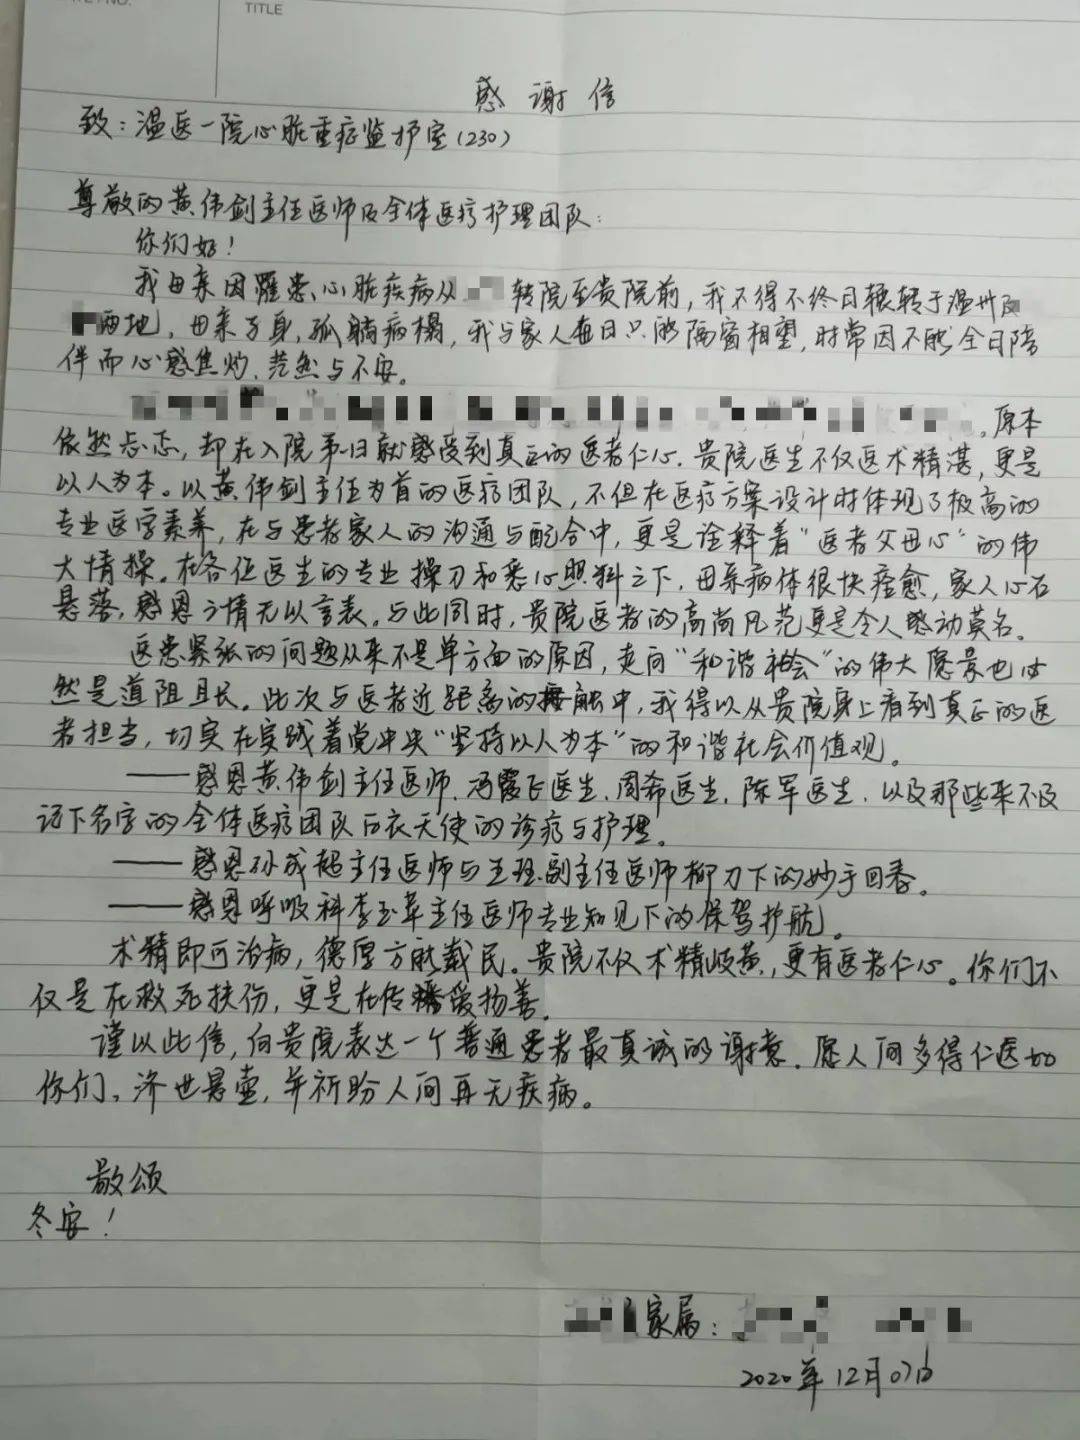 TITLE
感谢信
致：温医一院心脏重症监护室（230）
尊敬的黄伟剑主任医师及全体医疗护理团队：
你们好！
我母亲因罹患心脏疾病从 转院至贵院前，我不得不终日辗转于温州及
两地，母亲 身，孤躺病榻，我与家人每日只能隔窗相望，时常因不能全日陪
伴而心感焦灼、茫然与不安。
。原本
依然忐忑，却在入院第一日就感受到真正的医者仁心。贵院医生不仅医术精湛，更是
以人为本。以黄伟剑主任为首的医疗团队，不但在医疗方案设计时体现了极高的
专业医学素养，在与患者家人的沟通与配合中，更是诠释着“医者父母心”的伟
大情操。在各位医生的专业操刀和悉心照料之下，母亲病体很快痊愈，家人心石
悬落，感恩之情无以言表。与此同时，贵院医者的高尚风范更是令人感动莫名。
医患紧张的问题从来不是单方面的原因，走向“和谐社会”的伟大愿景也必
然是道阻且长。此次与医者近距离的接触中，我得以从贵院身上看到真正的医
者担当，切实在实践着党中央“坚持以人为本”的和谐社会价值观。
——感恩黄伟剑主任医师、冯霞飞医生、周希医生、陈军医生、以及那些来不及
记下名字的全体医疗团队白衣天使的诊疗与护理。
——感恩孙成超主任医师与王 副主任医师柳刀下的妙手回春。
——感恩呼吸科李玉苹主任医师专业知见下的保驾护航。
术精即可治病，德厚方能戴民。贵院不仅术精岐黄，更有医者仁心。你们不
仅是在救死扶伤，更是在传播爱扬善。
谨以此信，向贵院表达一个普通患者最真诚的谢意。愿人间多得仁医如
你们，济世悬壶，并祈盼人间再无疾病。
敬颂
冬安！
家属：
2020年12月07日